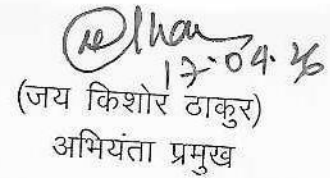 17.04.26
(जय किशोर ठाकुर)
अभियंता प्रमुख